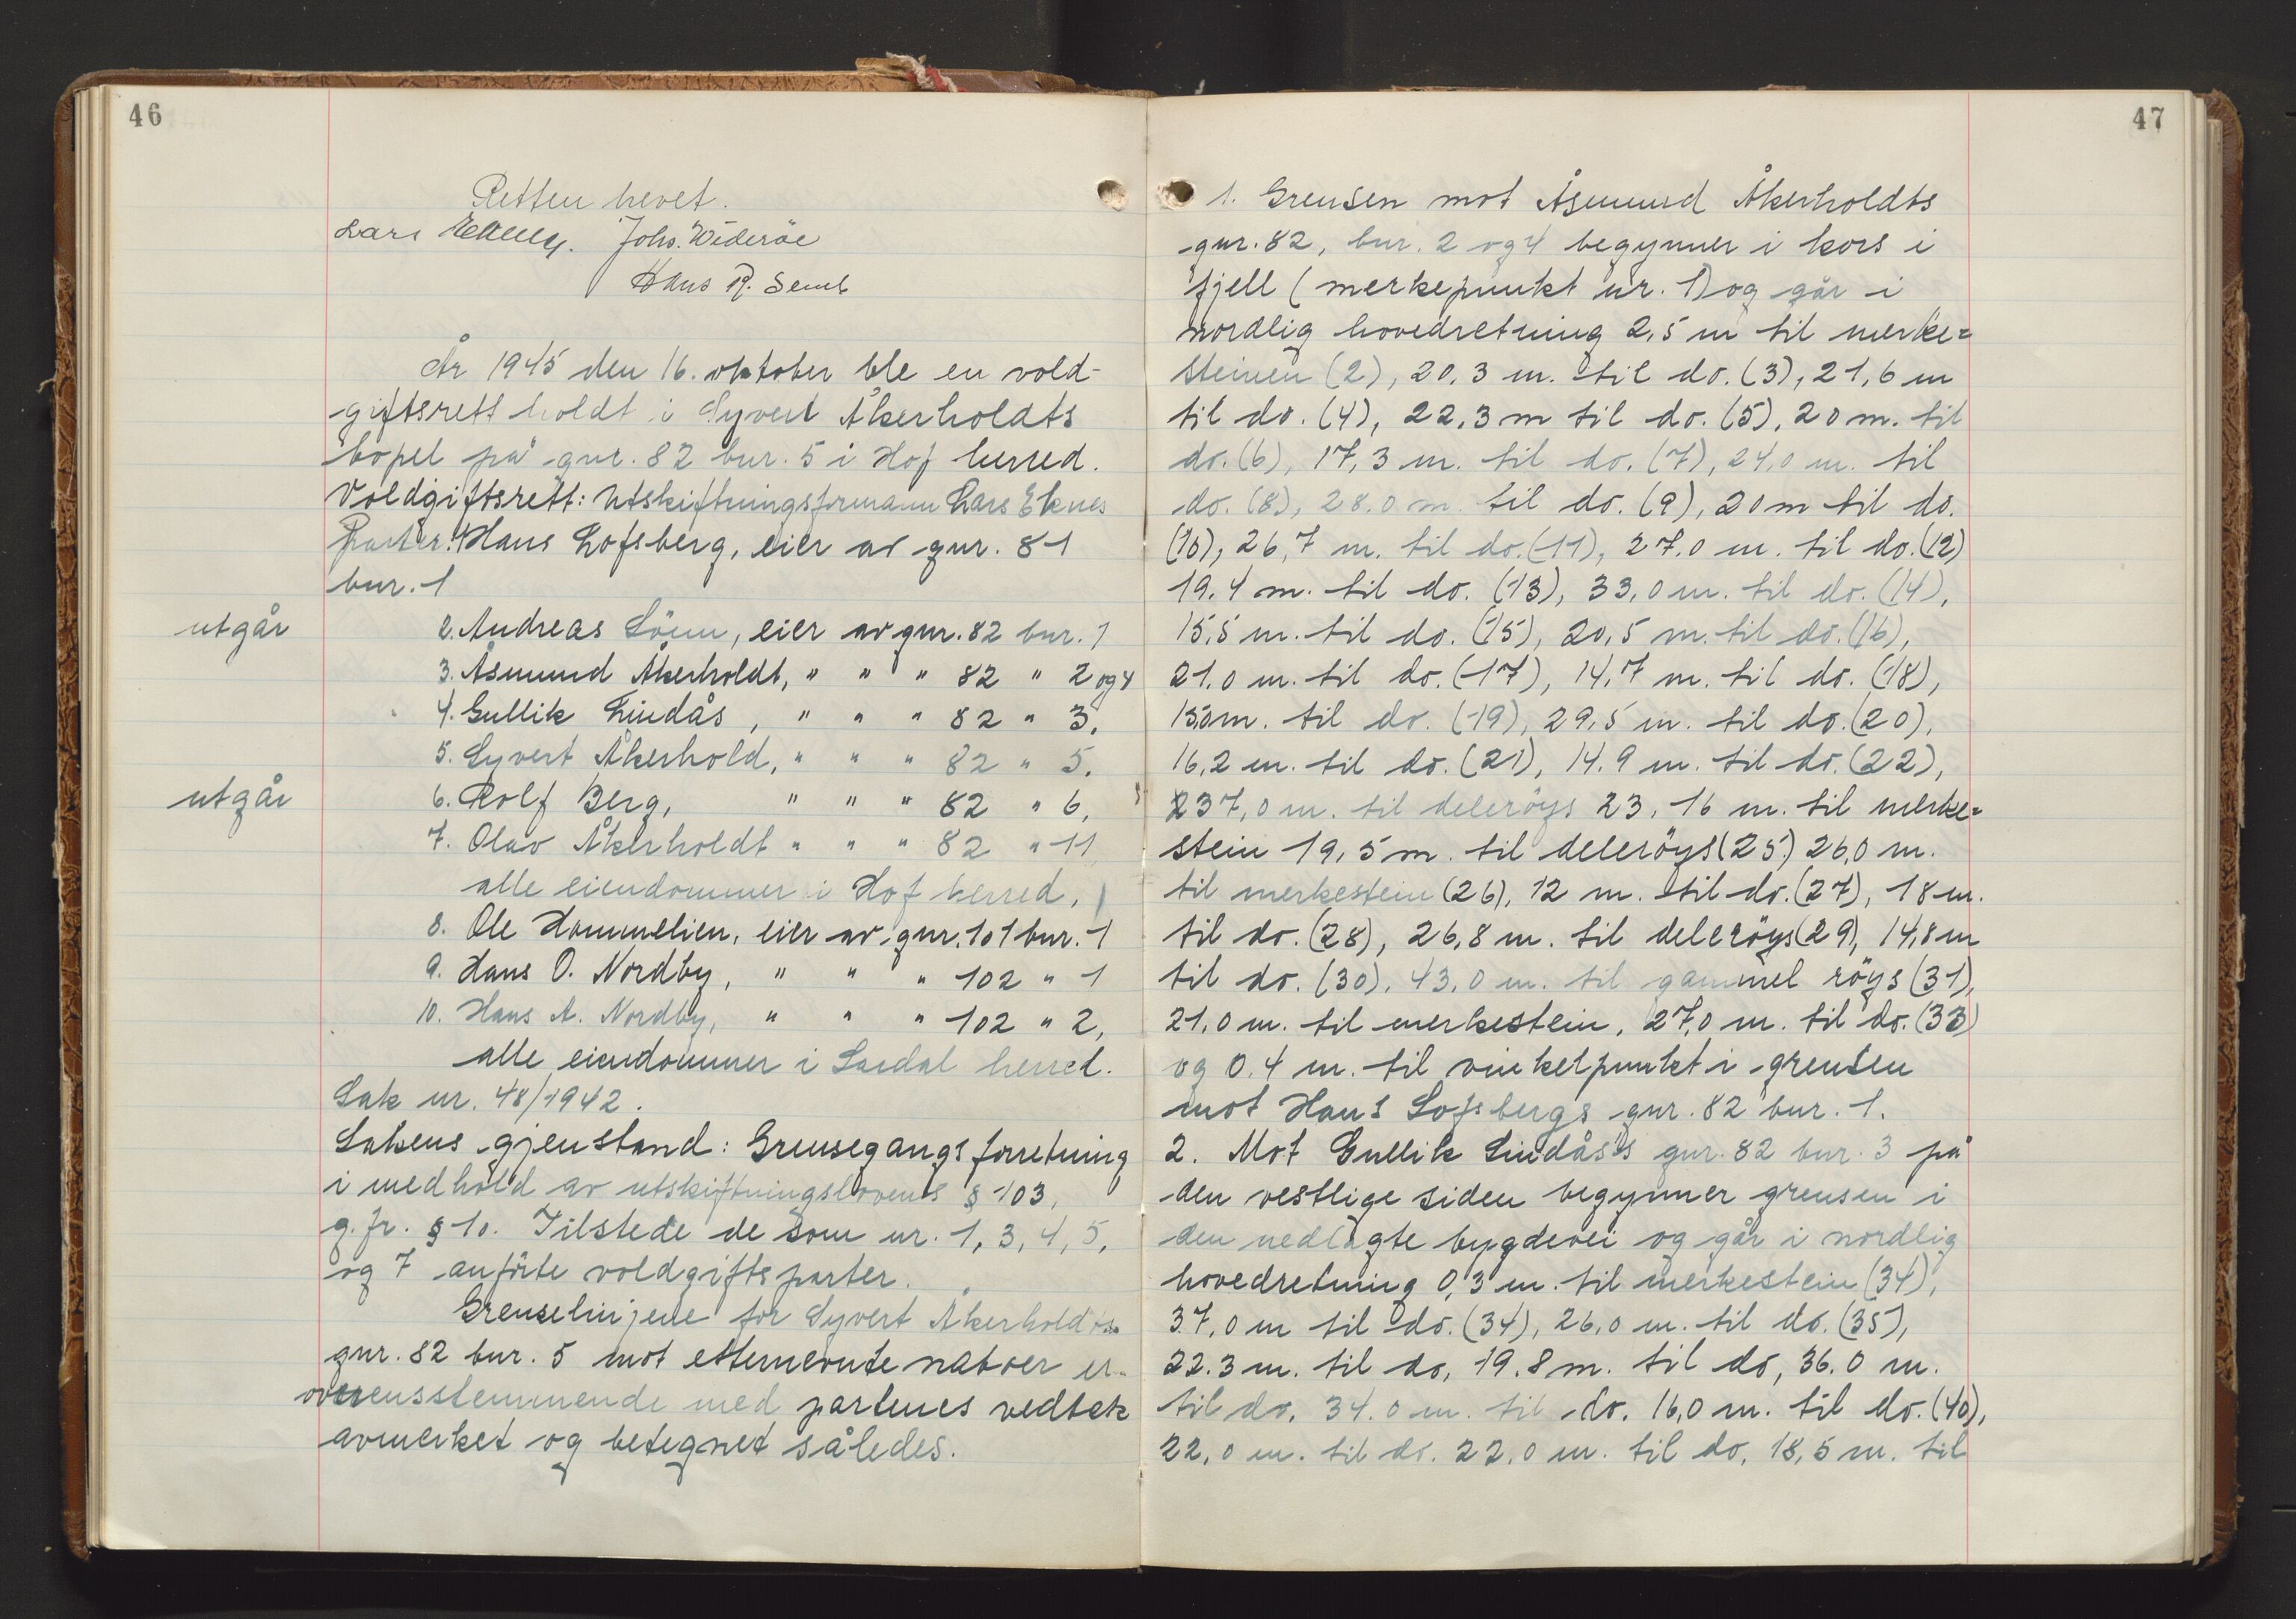 46
Retten hevet.
Lars Johs. Wideröe
Hans R. Semb
År 1945 den 16. oktober ble en vold-
giftsrett holdt i Syvert Åkerholdts
bopel på gnr. 82 bnr. 5 i Hof herred.
Voldgiftsrett: Utskiftningsformann Lars Eknes
Parter: 1 Hans Lofsberg, eier av gnr. 81
bnr. 1
utgår 2. Andreas Lönn, eier av gnr. 82 bnr. 1
3. Åsmund Åkerholdt, " " " 82 " 2 og 4
4. Gullik Lindås, " " " 82 " 3.
5. Syvert Åkerhold, " " " 82 " 5.
utgår 6. Rolf Berg, " " " 82 " 6,
7. Olav Åkerholdt " " " 82 " 11
alle eiendommer i Hof herred,
8. Ole Hommelien, eier av gnr. 101 bnr. 1
9. Hans O. Nordby, " " " 102 " 1
10. Hans A. Nordby, " " " 102 " 2,
alle eiendommer i Lardal herred.
Sak nr. 48/1942.
Sakens gjenstand: Grensegangsforretning
i medhold av utskiftningslovens § 103,
g. fr. § 10. Tilstede de som nr. 1, 3, 4, 5,
og 7 anförte voldgiftsparter.
Grenselinjene for Syvert Åkerholdts
gnr. 82 bnr. 5 mot etternevnte naboer er
overensstemmende med partenes vedtak
avmerket og betegnet således.
47
1. Grensen mot Åsmund Åkerholdts
gnr. 82, bnr. 2 og 4 begynner i kors i
fjell (merkepunkt nr. 1) og går i
nordlig hovedretning 2,5 m til merke=
steinen (2), 20,3 m. til do. (3), 21,6 m
til do. (4), 22,3 m til do. (5), 20 m. til
do. (6), 17,3 m. til do. (7), 24,0 m. til
do. (8), 28.0 m. til do. (9), 20 m til do.
(10), 26,7 m. til do. (11), 27,0 m. til do. (12)
19,4 m. til do. (13), 33,0 m. til do. (14),
15,5 m. til do. (15), 20,5 m. til do. (16),
21,0 m. til do. (17), 14,7 m. til do. (18),
15,0 m. til do. (19), 29,5 m. til do. (20),
16,2 m. til do. (21), 14,9 m. til do. (22),
237,0 m. til deleröys 23, 16 m. til merke=
stein 19,5 m. til deleröys (25) 26,0 m.
til merkestein (26), 12 m. til do. (27), 18 m.
til do. (28), 26,8 m. til deleröys (29), 14,8 m
til do. (30), 43,0 m. til gammel röys (31),
21,0 m. til merkestein, 27,0 m. til do. (33)
og 0,4 m. til vinkelpunkt i grensen
mot Hans Lofsbergs gnr. 82 bnr. 1.
2. Mot Gullik Lindås's gnr. 82 bnr. 3 på
den vestlige siden begynner grensen i
den nedlagte bygdevei og går i nordlig
hovedretning 0,3 m. til merkestein (34),
37,0 m til do. (34), 26,0 m. til do. (35),
22.3 m. til do, 19.8 m. til do, 36.0 m.
til do, 34.0 m. til do. 16,0 m. til do. (40),
22,0 m. til do. 22,0 m. til do, 18,5 m. til